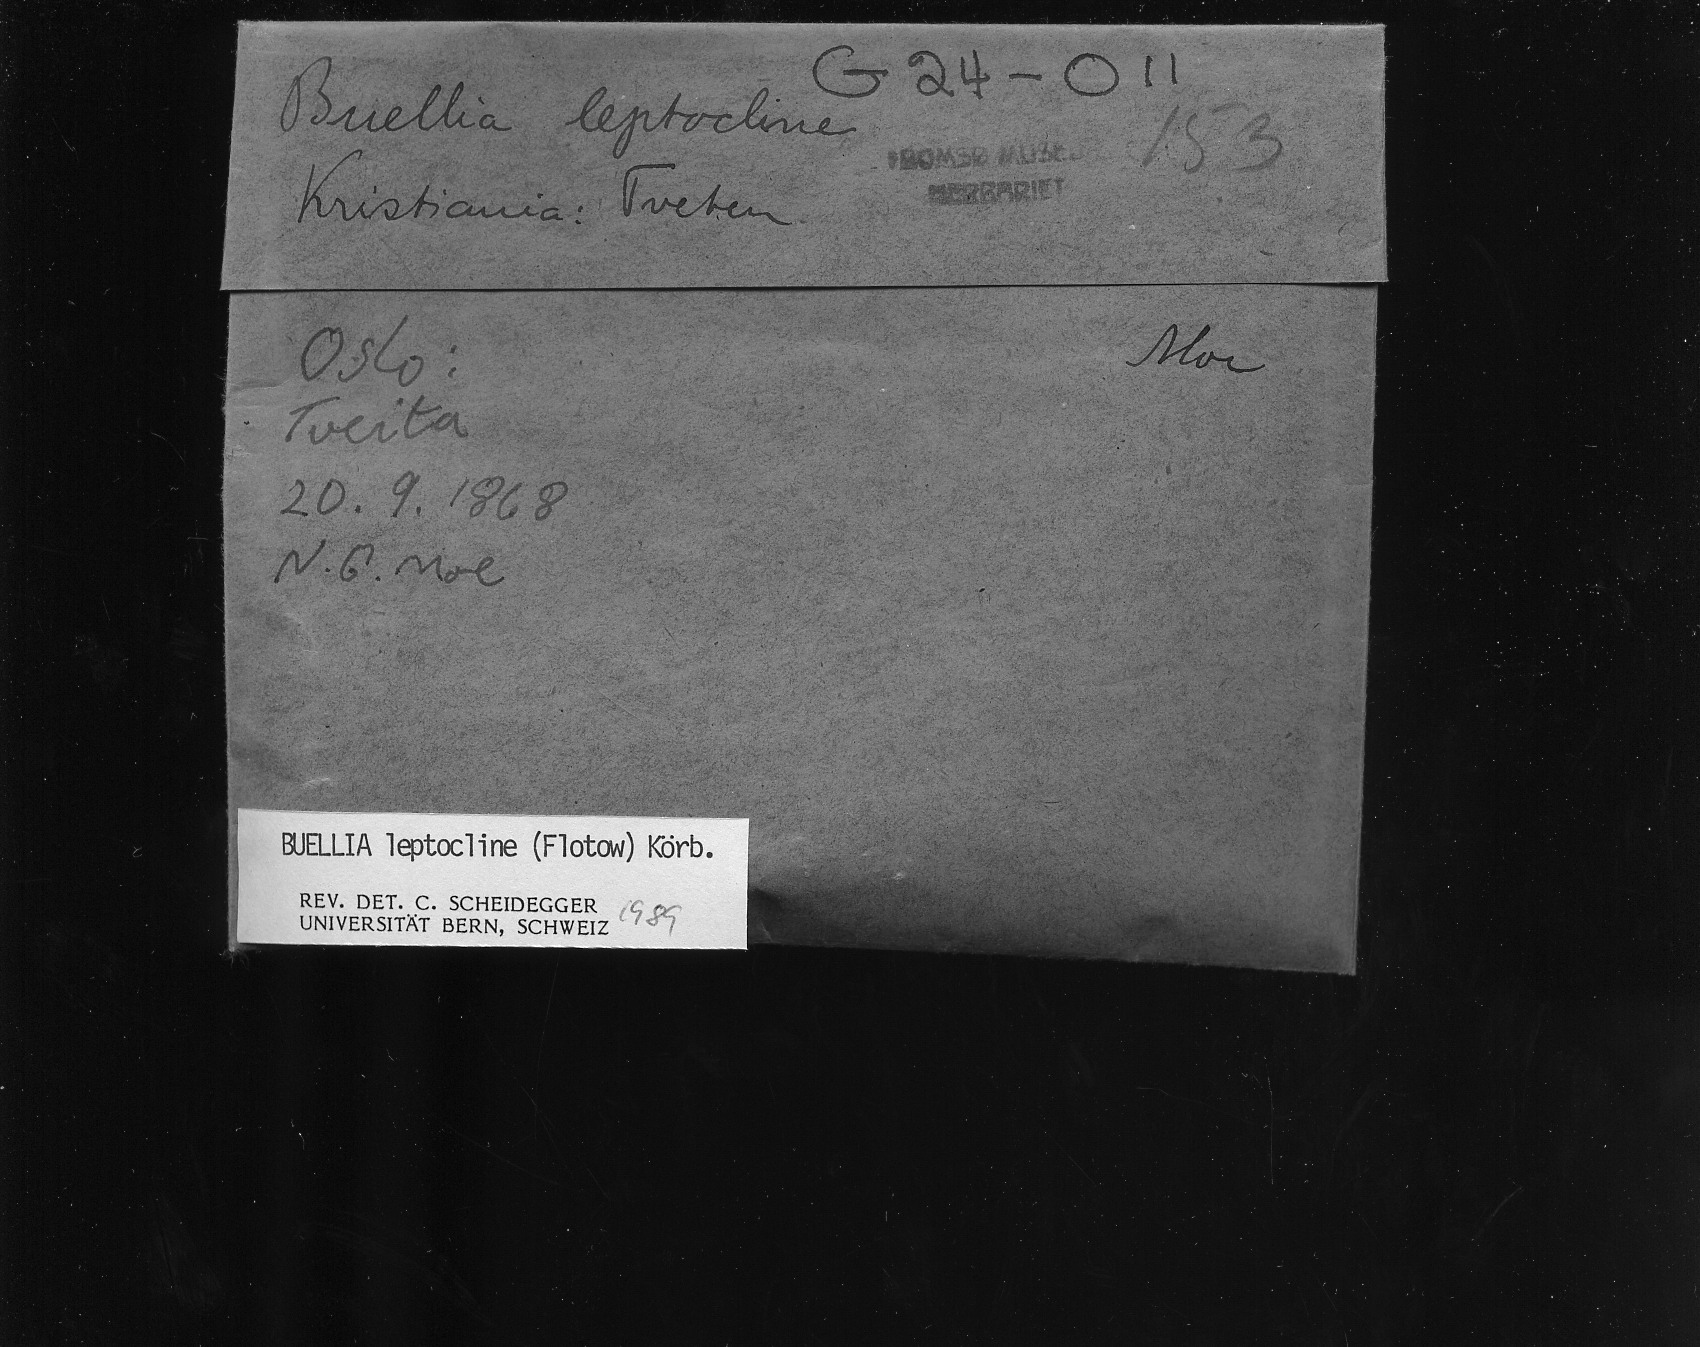 G24-011
Buellia leptocline
153
Kristiania: Tveten
HERBARIET
Oslo:
Moe
Tveita
20. 9. 1868
N.G. Moe
BUELLIA leptocline (Flotow) Körb.
REV. DET. C. SCHEIDEGGER
UNIVERSITÄT BERN, SCHWEIZ 1989